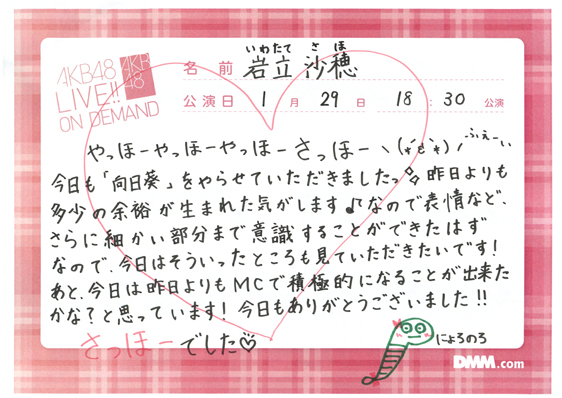 AKB48
LIVE!!
ON DEMAND
AKB
48
いわたて さほ
名前 岩立 沙穂
公演日 1月 29日 18:30 公演
やっほーやっほーやっほーさっほーヽ(*'ε'*)ノ ふぇーい
今日も「向日葵」をやらせていただきましたっ 昨日よりも
多少の余裕が生まれた気がします♪なので表情など、
さらに細かい部分まで意識することができたはず
なので、今日はそういったところも見ていただきたいです!
あと、今日は昨日よりもMCで積極的になることが出来た
かな?と思っています!今日もありがとうございました!!
さっほーでした♡
にょろのろ
DMM.com